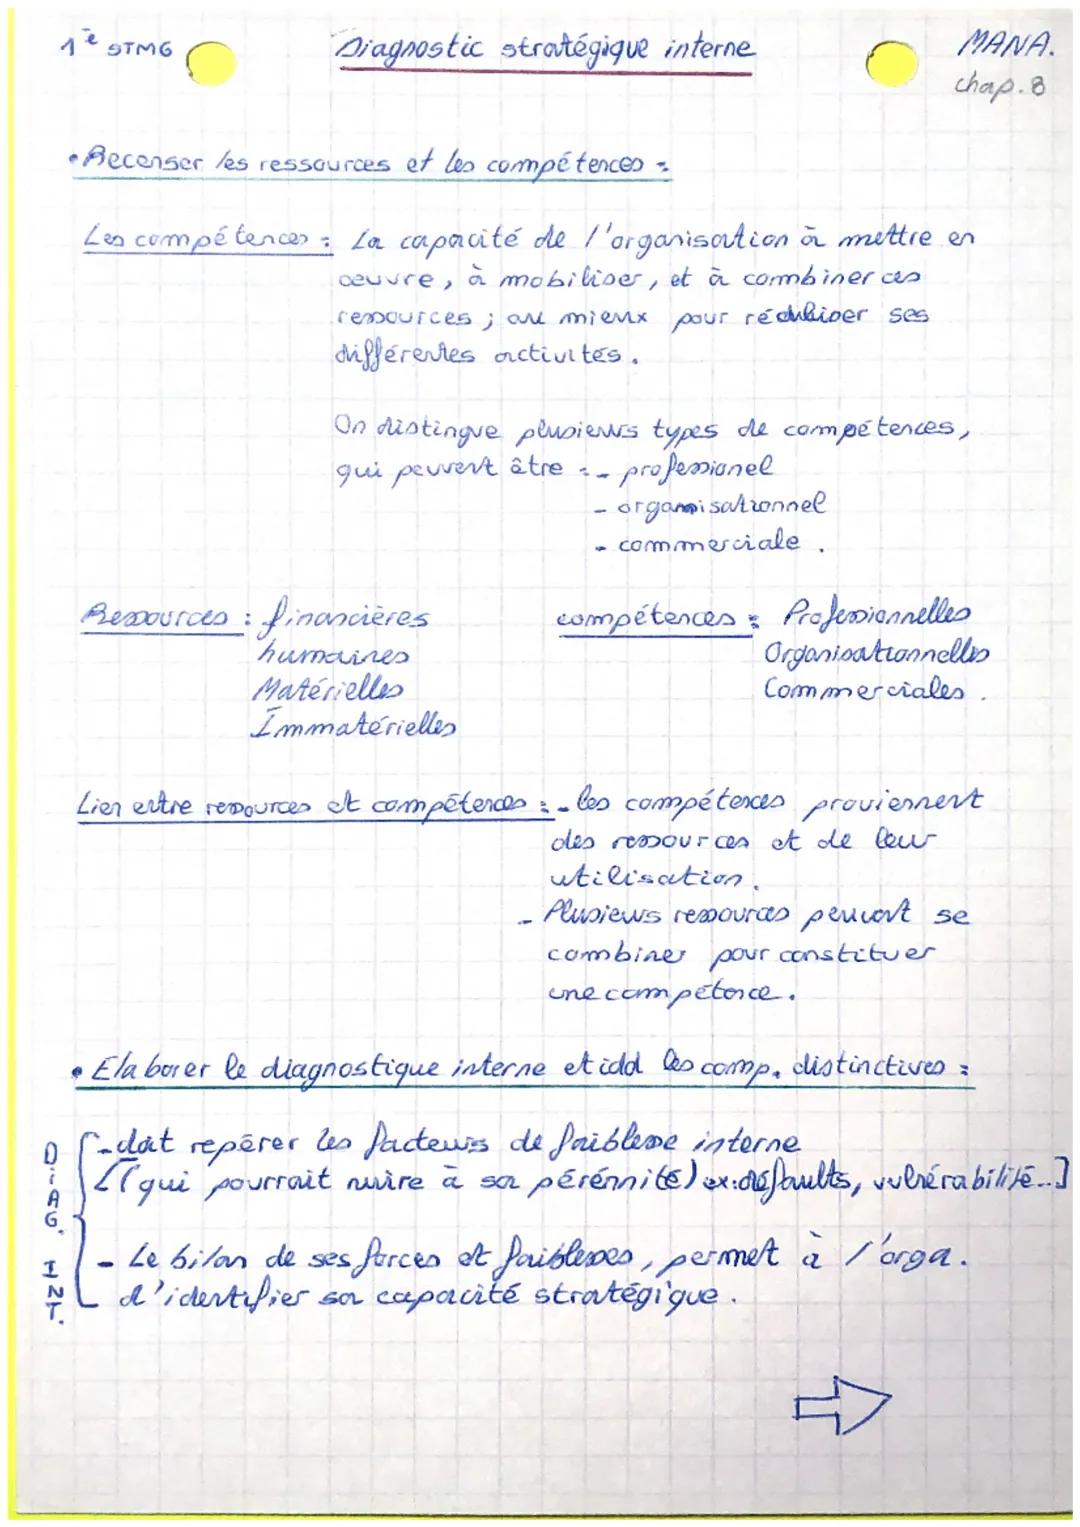 1è STMG
Diagnostic stratégique interne
MANA.
chap. 8
• Recenser les ressources et les compétences :
Les compétences : La capacité de l'organisation à mettre en
œuvre, à mobiliser, et à combiner ces
ressources ; au mieux pour réaliser ses
différentes activités.
On distingue plusieurs types de compétences,
qui peuvent être : - professionel
- organisationnel
- commerciale.
Ressources : financières
humaines
Matérielles
Immatérielles
compétences : Professionnelles
Organisationnelles
Commerciales.
Lien entre ressources et compétences : - les compétences proviennent
des ressources et de leur
utilisation.
- Plusieurs ressources peuvent se
combiner pour constituer
une compétence.
• Elaborer le diagnostique interne et idd les comp. distinctives :
DIAG. INT.
- doit repérer les facteurs de faiblesse interne
[(qui pourrait nuire à sa pérénnité) ex: défaults, vulnérabilité...]
- Le bilan de ses forces et faiblesses, permet à l'orga.
d'identifier sa capacité stratégique.